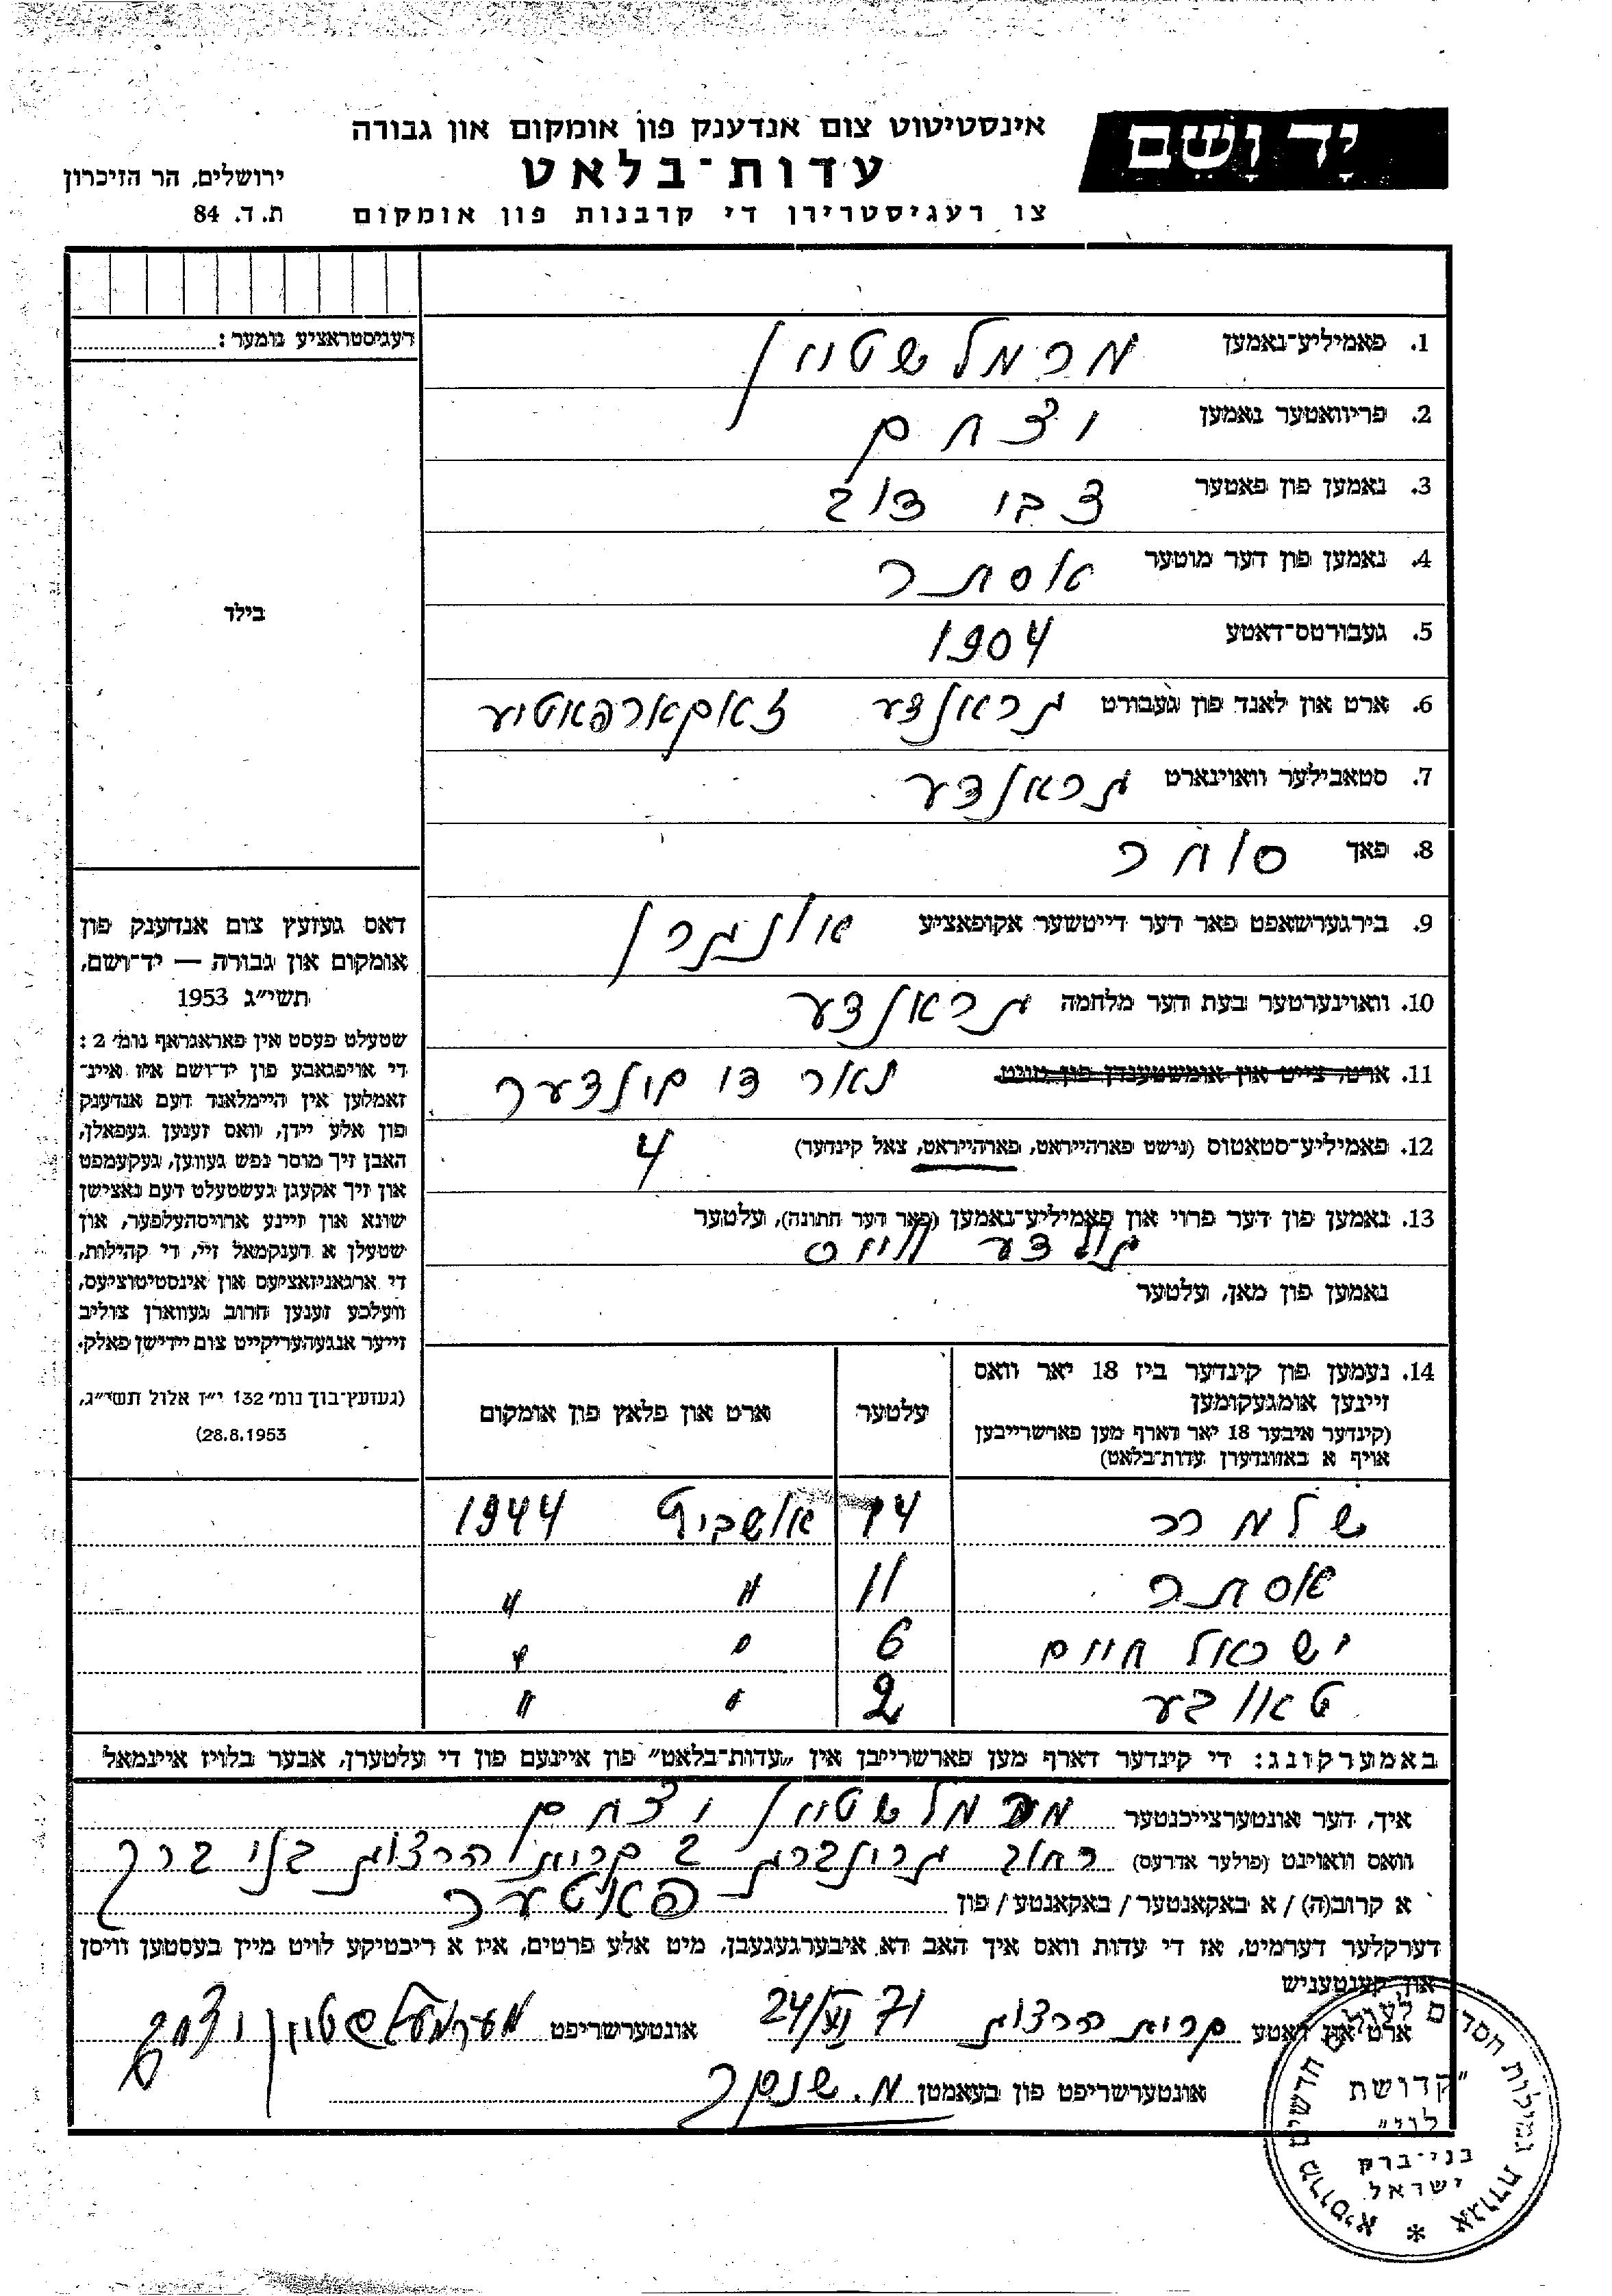 יָד וָשֵׁם
אינסטיטוט צום אנדענק פון אומקום און גבורה
עדות־בלאט
צו רעגיסטרירן די קרבנות פון אומקום
ירושלים, הר הזיכרון
ת. ד. 84
רעגיסטראציע נומער:
בילד
1. פאמיליע־נאמען מרמלשטיין
2. פריוואטער נאמען יצחק
3. נאמען פון פאטער צבי דוב
4. נאמען פון דער מוטער אסתר
5. געבורטס־דאטע 1904
6. ארט און לאנד פון געבורט
7. סטאבילער וואוינארט
8. פאך סוחר
9. בירגערשאפט פאר דער דייטשער אקופאציע אונגרן
10. וואוינערטער בעת דער מלחמה
11. ארט, צייט און אומשטענדן פון טויט נאר די קינדער
12. פאמיליע־סטאטוס (נישט פארהייראט, פארהייראט, צאל קינדער) 4
13. נאמען פון דער פרוי און פאמיליע־נאמען (פאר דער חתונה), עלטער
נאמען פון מאן, עלטער
14. נעמען פון קינדער ביז 18 יאר וואס
זיינען אומגעקומען
(קינדער איבער 18 יאר דארף מען פארשרייבן
אויף א באזונדערן עדות־בלאט)
עלטער
ארט און פלאץ פון אומקום
14 אושביץ 1944
אסתר 11 " "
ישראל חיים 6 " "
טאובע 2 " "
דאס געזעץ צום אנדענק פון
אומקום און גבורה — יד־ושם,
תשי״ג 1953
שטעלט פעסט אין פאראגראף נומ׳ 2:
די אויפגאבע פון יד־ושם איז איינ־
זאמלען אין היימלאנד דעם אנדענק
פון אלע יידן, וואס זענען געפאלן,
האבן זיך מוסר נפש געווען, געקעמפט
און זיך אקעגן געשטעלט דעם נאצישן
שונא און זיינע ארויסהעלפער, און
שטעלן א דענקמאל זיי, די קהילות,
די ארגאניזאציעס און אינסטיטוציעס,
וועלכע זענען חרוב געווארן צוליב
זייער אנגעהעריקייט צום יידישן פאלק.
(געזעץ־בוך נומ׳ 132 י״ז אלול תשי״ג,
28.8.1953)
באמערקונג: די קינדער דארף מען פארשרייבן אין ״עדות־בלאט״ פון איינעם פון די עלטערן, אבער בלויז איינמאל
איך, דער אונטערצייכנטער מרמלשטיין יצחק
וואס וואוינט (פולער אדרעס) רחוב גרינברג 2 קרית הרצוג בני ברק
א קרוב(ה) / א באקאנטער / באקאנטע / פון פאטער
דערקלער דערמיט, אז די עדות וואס איך האב דא איבערגעגעבן, מיט אלע פרטים, איז א ריכטיקע לויט מיין בעסטען וויסן
און קענטעניש
ארט און דאטע קרית הרצוג 24/VI 71 אונטערשריפט מערמעלשטיין יצחק
אונטערשריפט פון בעאמטן
אגודת גמילות חסדים לעולים חדשים מרוסיא *
״קדושת
לוי״
בני־ברק
ישראל